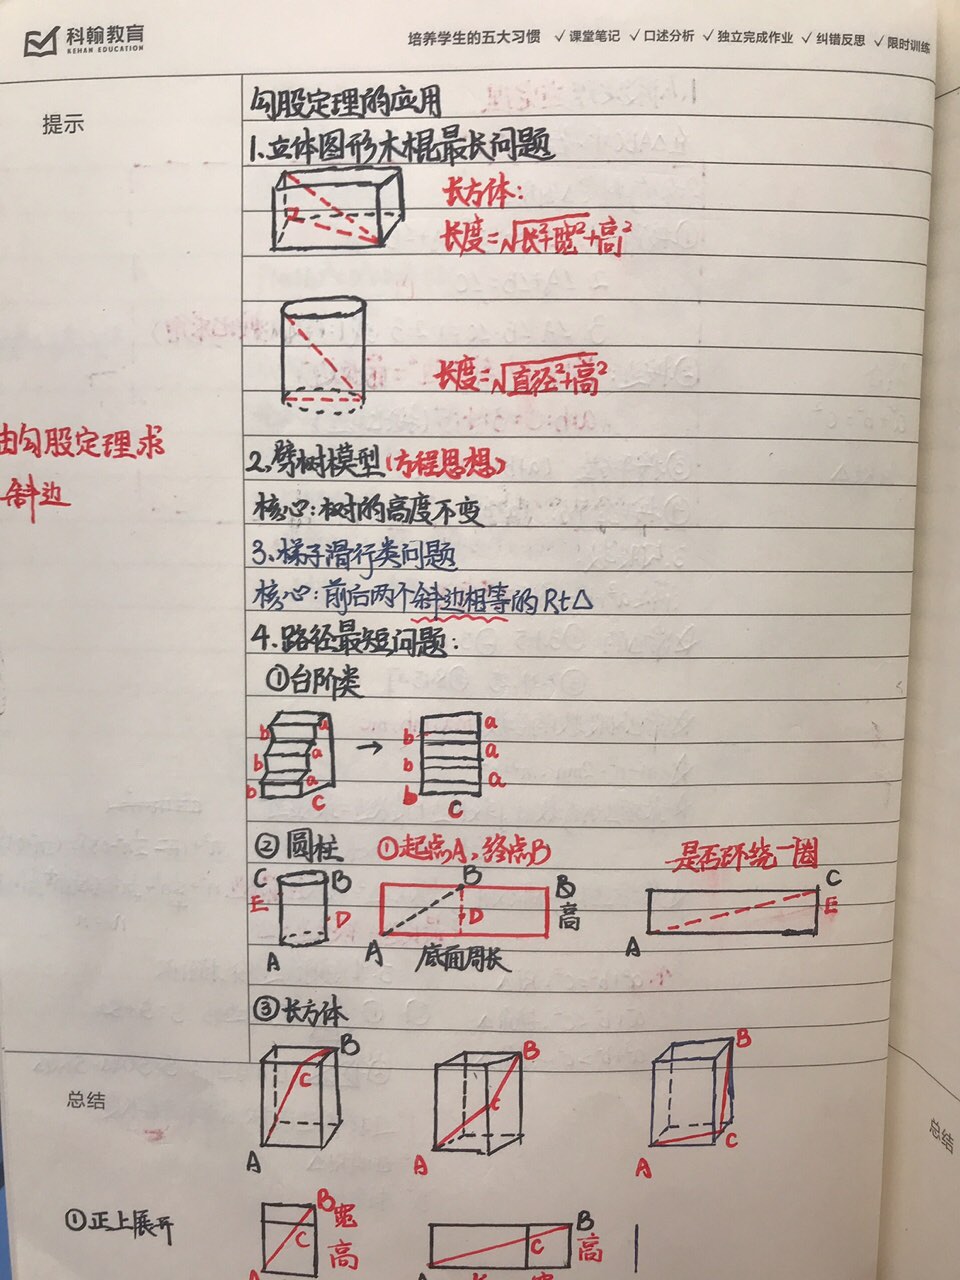 科翰教育
KEHAN EDUCATION
培养学生的五大习惯 ✓课堂笔记 ✓口述分析 ✓独立完成作业 ✓纠错反思 ✓限时训练
提示
勾股定理的应用
1.立体图形木棍最长问题
长方体:
长度=√长²+宽²+高²
长度=√直径²+高²
由勾股定理求
斜边
2.劈树模型(方程思想)
核心:树的高度不变
3.梯子滑行类问题
核心:前后两个斜边相等的Rt△
4.路径最短问题:
①台阶类
b a
b a
b a
c
→
b a
b a
b a
C
②圆柱 ①起点A,终点B 是否环绕一圈
C B
E D
A
B B
D 高
A 底面周长
C
E
A
③长方体
B
C
A
B
C
A
B
C
A
总结
总结
①正上展开
B 宽
C 高
A
B
C 高
A 长 宽